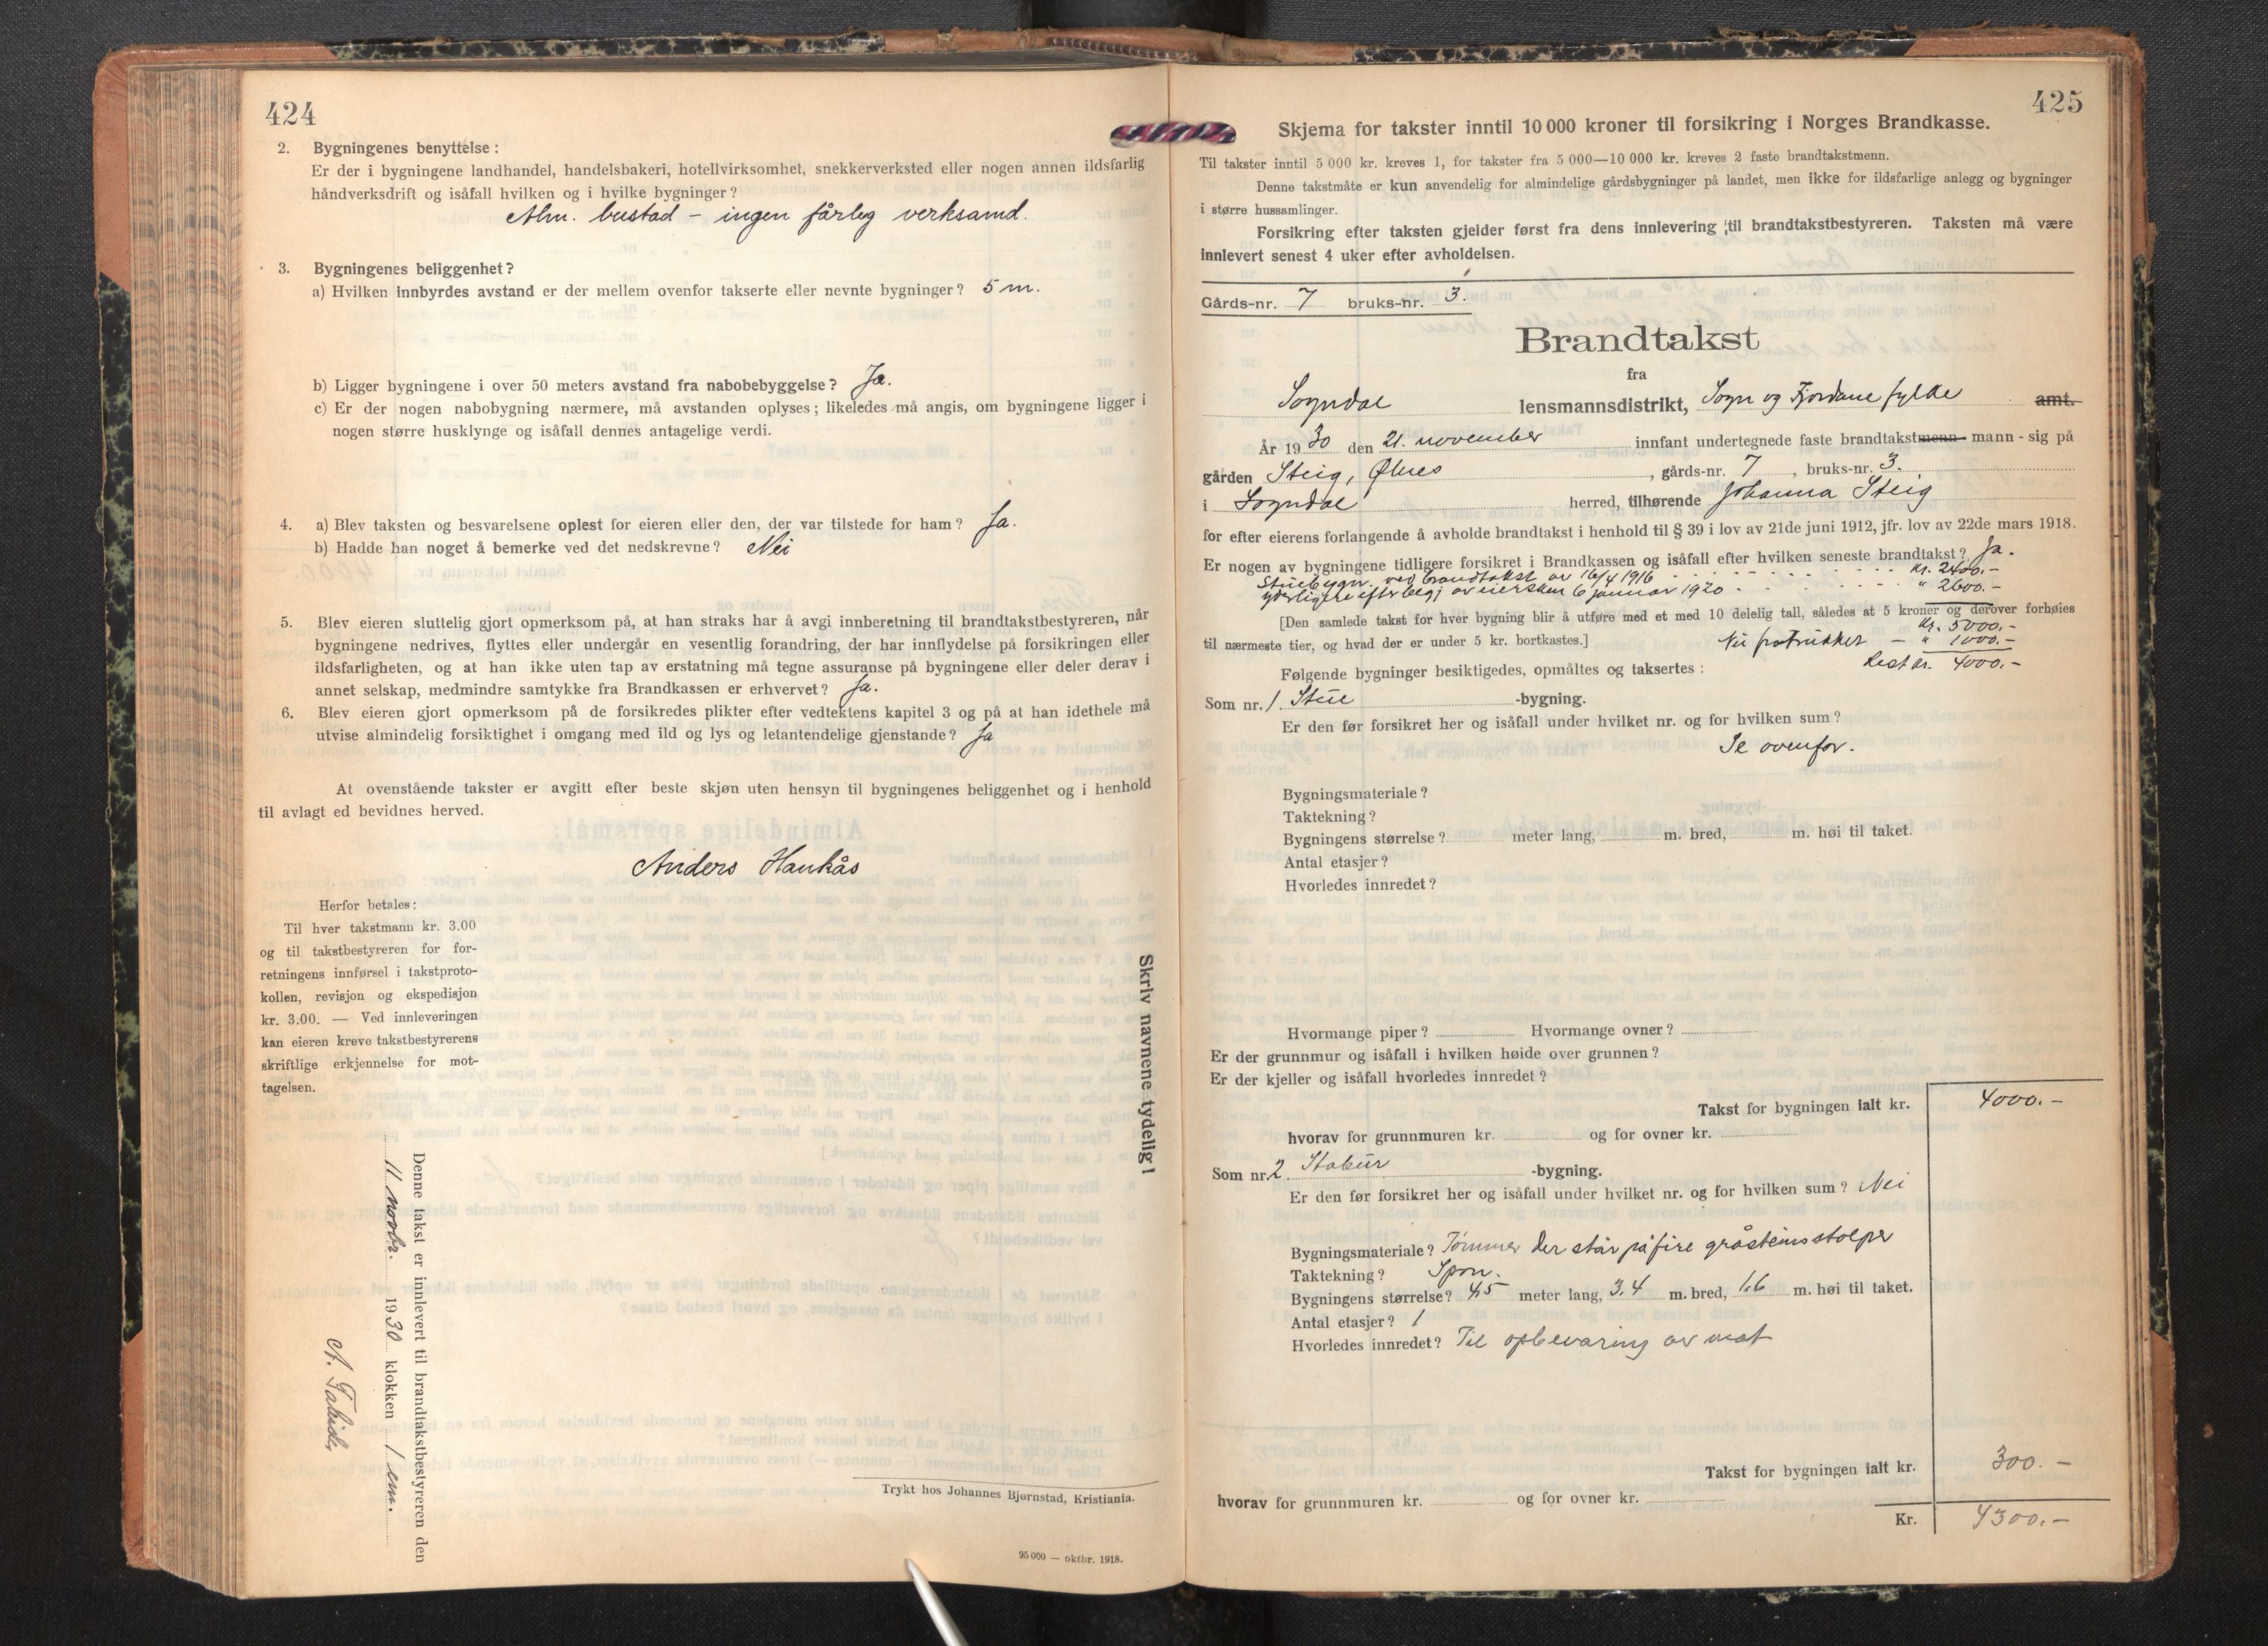 424
2. Bygningenes benyttelse :
Er der i bygningene landhandel, handelsbakeri, hotellvirksomhet, snekkerverksted eller nogen annen ildsfarlig
håndverksdrift og isåfall hvilken og i hvilke bygninger ?
Alm. bustad – ingen fårleg verksamd.
3. Bygningenes beliggenhet ?
a) Hvilken innbyrdes avstand er der mellem ovenfor takserte eller nevnte bygninger ? 5 m.
b) Ligger bygningene i over 50 meters avstand fra nabobebyggelse ? Ja.
c) Er der nogen nabobygning nærmere, må avstanden oplyses ; likeledes må angis, om bygningene ligger i
nogen større husklynge og isåfall dennes antagelige verdi.
4. a) Blev taksten og besvarelsene oplest for eieren eller den, der var tilstede for ham ? Ja.
b) Hadde han noget å bemerke ved det nedskrevne ? Nei
5. Blev eieren sluttelig gjort opmerksom på, at han straks har å avgi innberetning til brandtakstbestyreren, når
bygningene nedrives, flyttes eller undergår en vesentlig forandring, der har innflydelse på forsikringen eller
ildsfarligheten, og at han ikke uten tap av erstatning må tegne assuranse på bygningene eller deler derav i
annet selskap, medmindre samtykke fra Brandkassen er erhvervet ? Ja.
6. Blev eieren gjort opmerksom på de forsikredes plikter efter vedtektens kapitel 3 og på at han idethele må
utvise almindelig forsiktighet i omgang med ild og lys og letantendelige gjenstande ? Ja
At ovenstående takster er avgitt efter beste skjøn uten hensyn til bygningenes beliggenhet og i henhold
til avlagt ed bevidnes herved.
Anders Haukås
Herfor betales :
Til hver takstmann kr. 3.00
og til takstbestyreren for for-
retningens innførsel i takstproto-
kollen, revisjon og ekspedisjon
kr. 3.00. — Ved innleveringen
kan eieren kreve takstbestyrerens
skriftlige erkjennelse for mot-
tagelsen.
Denne takst er innlevert til brandtakstbestyreren den
11 novbr. 1930 klokken 1 em.
Skriv navnene tydelig !
Trykt hos Johannes Bjørnstad, Kristiania.
95 000 — oktbr. 1918.
425
Skjema for takster inntil 10 000 kroner til forsikring i Norges Brandkasse.
Til takster inntil 5 000 kr. kreves 1, for takster fra 5 000—10 000 kr. kreves 2 faste brandtakstmenn.
Denne takstmåte er kun anvendelig for almindelige gårdsbygninger på landet, men ikke for ildsfarlige anlegg og bygninger
i større hussamlinger.
Forsikring efter taksten gjelder først fra dens innlevering til brandtakstbestyreren. Taksten må være
innlevert senest 4 uker efter avholdelsen.
Gårds-nr. 7 bruks-nr. 3.
Brandtakst
fra
Sogndal lensmannsdistrikt, Sogn og Fjordane fylke amt.
År 1930 den 21. november innfant undertegnede faste brandtakstmenn mann - sig på
gården Steig, Ølnes, gårds-nr. 7, bruks-nr. 3.
i Sogndal herred, tilhørende Johanna Steig
for efter eierens forlangende å avholde brandtakst i henhold til § 39 i lov av 21de juni 1912, jfr. lov av 22de mars 1918.
Er nogen av bygningene tidligere forsikret i Brandkassen og isåfall efter hvilken seneste brandtakst ? Ja.
Stuebygn. ved brandtakst av 16/4 1916 kr. 2400.-
yderligere efter begj. av eiersken 6 januar 1920 " 2600.-
[Den samlede takst for hver bygning blir å utføre med et med 10 delelig tall, således at 5 kroner og derover forhøies
kr. 5000.-
til nærmeste tier, og hvad der er under 5 kr. bortkastes.] Nu fratrukket — " 1000.-
Rest kr. 4000.-
Følgende bygninger besiktigedes, opmåltes og taksertes :
Som nr. 1 Stue -bygning.
Er den før forsikret her og isåfall under hvilket nr. og for hvilken sum ?
Se ovenfor.
Bygningsmateriale ?
Taktekning ?
Bygningens størrelse ? meter lang, m. bred, m. høi til taket.
Antal etasjer ?
Hvorledes innredet ?
Hvormange piper ? Hvormange ovner ?
Er der grunnmur og isåfall i hvilken høide over grunnen ?
Er der kjeller og isåfall hvorledes innredet ?
Takst for bygningen ialt kr. 4000.-
hvorav for grunnmuren kr. og for ovner kr.
Som nr. 2 Stabur -bygning.
Er den før forsikret her og isåfall under hvilket nr. og for hvilken sum ? Nei
Bygningsmateriale ? Tømmer der står på fire gråsteinsstolper
Taktekning ? Spon.
Bygningens størrelse ? 4,5 meter lang, 3.4 m. bred, 1.6 m. høi til taket.
Antal etasjer ? 1
Hvorledes innredet ? Til opbevaring av mat
Takst for bygningen ialt kr. 300.-
hvorav for grunnmuren kr. og for ovner kr.
Kr. 4300.-